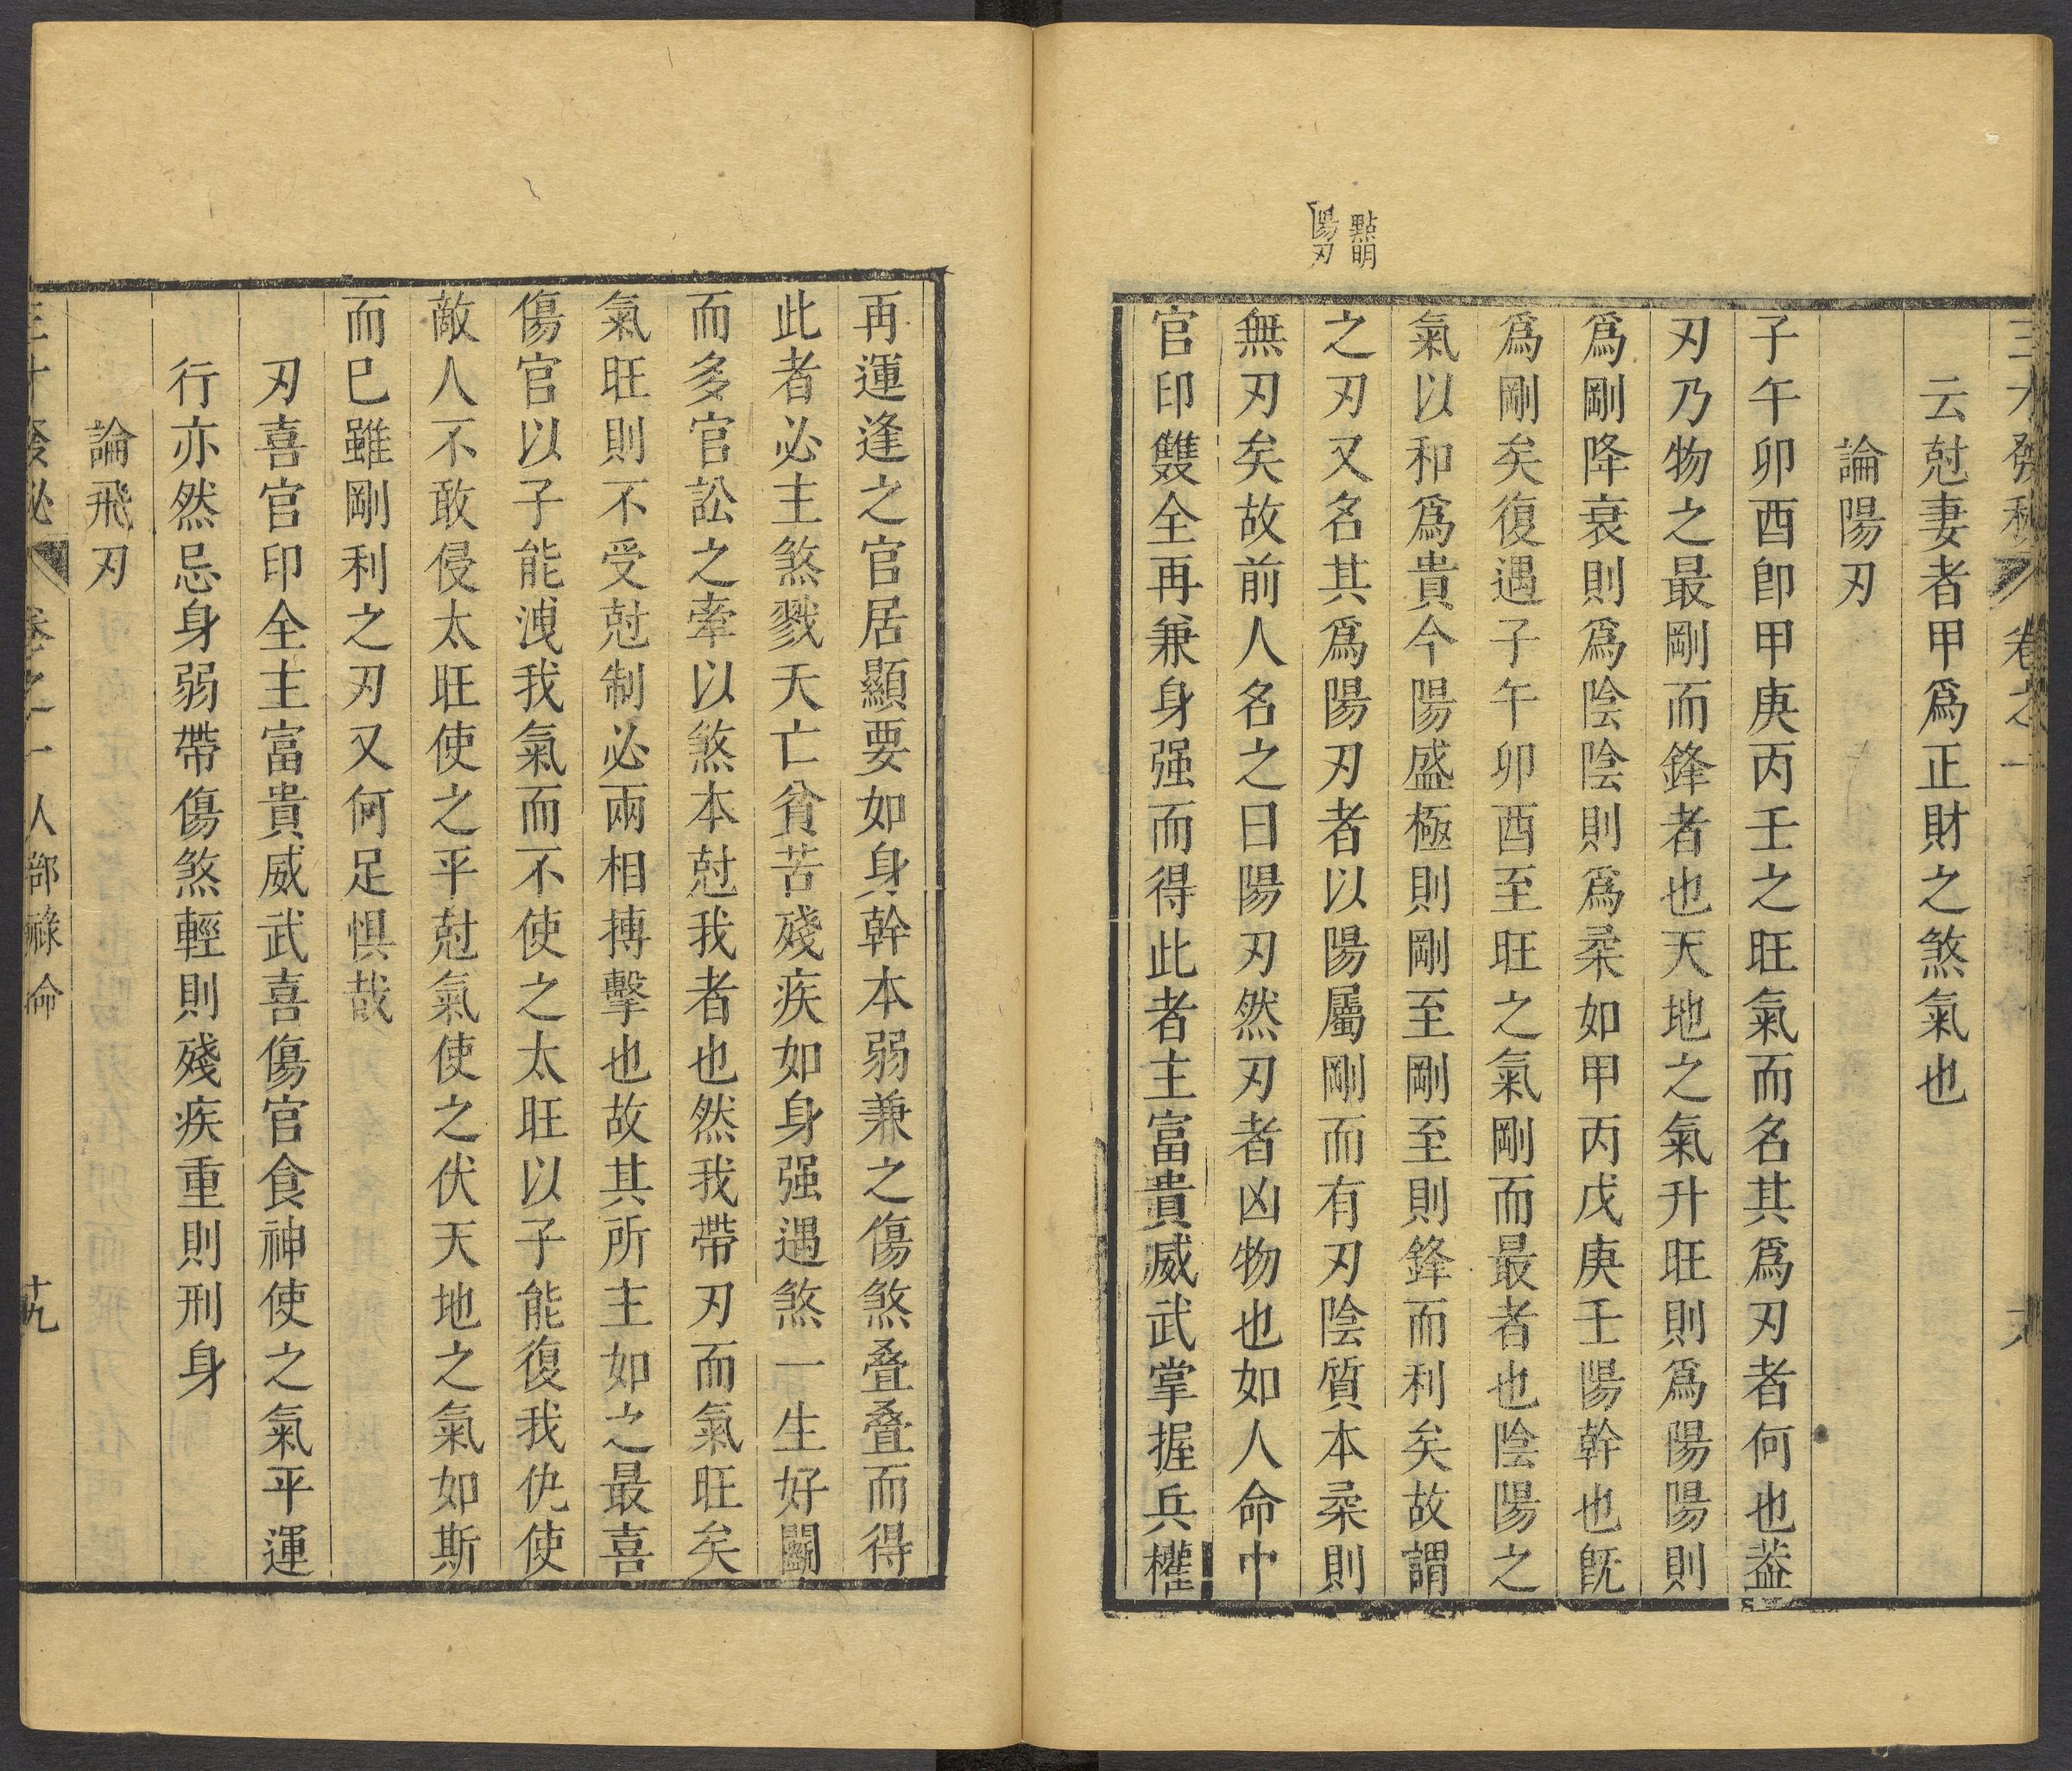 三才發秘 卷之一
云尅妻者甲爲正財之煞氣也
論陽刃
子午卯酉卽甲庚丙壬之旺氣而名其爲刃者何也葢
刃乃物之最剛而鋒者也天地之氣升旺則爲陽陽則
爲剛降衰則爲陰陰則爲柔如甲丙戊庚壬陽幹也旣
爲剛矣復遇子午卯酉至旺之氣剛而最者也陰陽之
氣以和爲貴今陽盛極則剛至剛至則鋒而利矣故謂
之刃又名其爲陽刃者以陽屬剛而有刃陰質本柔則
無刃矣故前人名之曰陽刃然刃者凶物也如人命中
官印雙全再兼身强而得此者主富貴威武掌握兵權
點明
陽刃
再運逢之官居顯要如身幹本弱兼之傷煞叠叠而得
此者必主煞戮夭亡貧苦殘疾如身强遇煞一生好鬭
而多官訟之牽以煞本尅我者也然我帶刃而氣旺矣
氣旺則不受尅制必兩相搏擊也故其所主如之最喜
傷官以子能洩我氣而不使之太旺以子能復我仇使
敵人不敢侵太旺使之平尅氣使之伏天地之氣如斯
而已雖剛利之刃又何足懼哉
刃喜官印全主富貴威武喜傷官食神使之氣平運
行亦然忌身弱帶傷煞輕則殘疾重則刑身
論飛刃
三才發秘 卷之一 人部祿命 十九